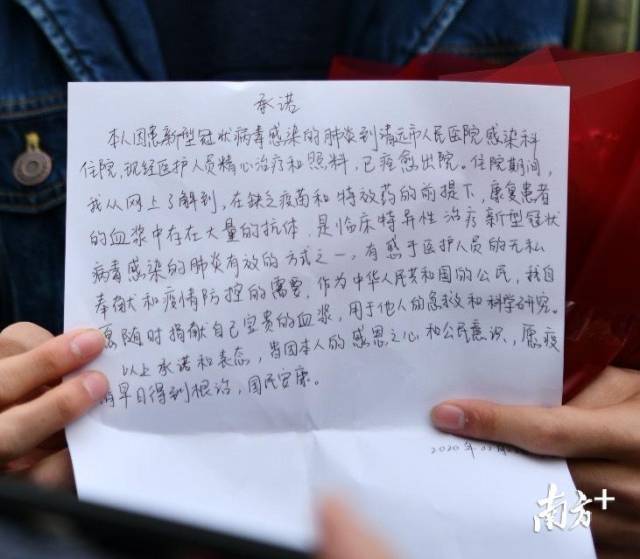 承诺
本人因患新型冠状病毒感染的肺炎到清远市人民医院感染科
住院,现经医护人员精心治疗和照料,已痊愈出院。住院期间,
我从网上了解到,在缺乏疫苗和特效药的前提下,康复患者
的血浆中存在大量的抗体,是临床特异性治疗新型冠状
病毒感染的肺炎有效的方式之一。有感于医护人员的无私
奉献和疫情防控的需要,作为中华人民共和国的公民,我自
愿随时捐献自己宝贵的血浆,用于他人的急救和科学研究。
以上承诺和表态,当因本人的感恩之心和公民意识,愿疫
情早日得到根治,国民安康。
2020年
南方+